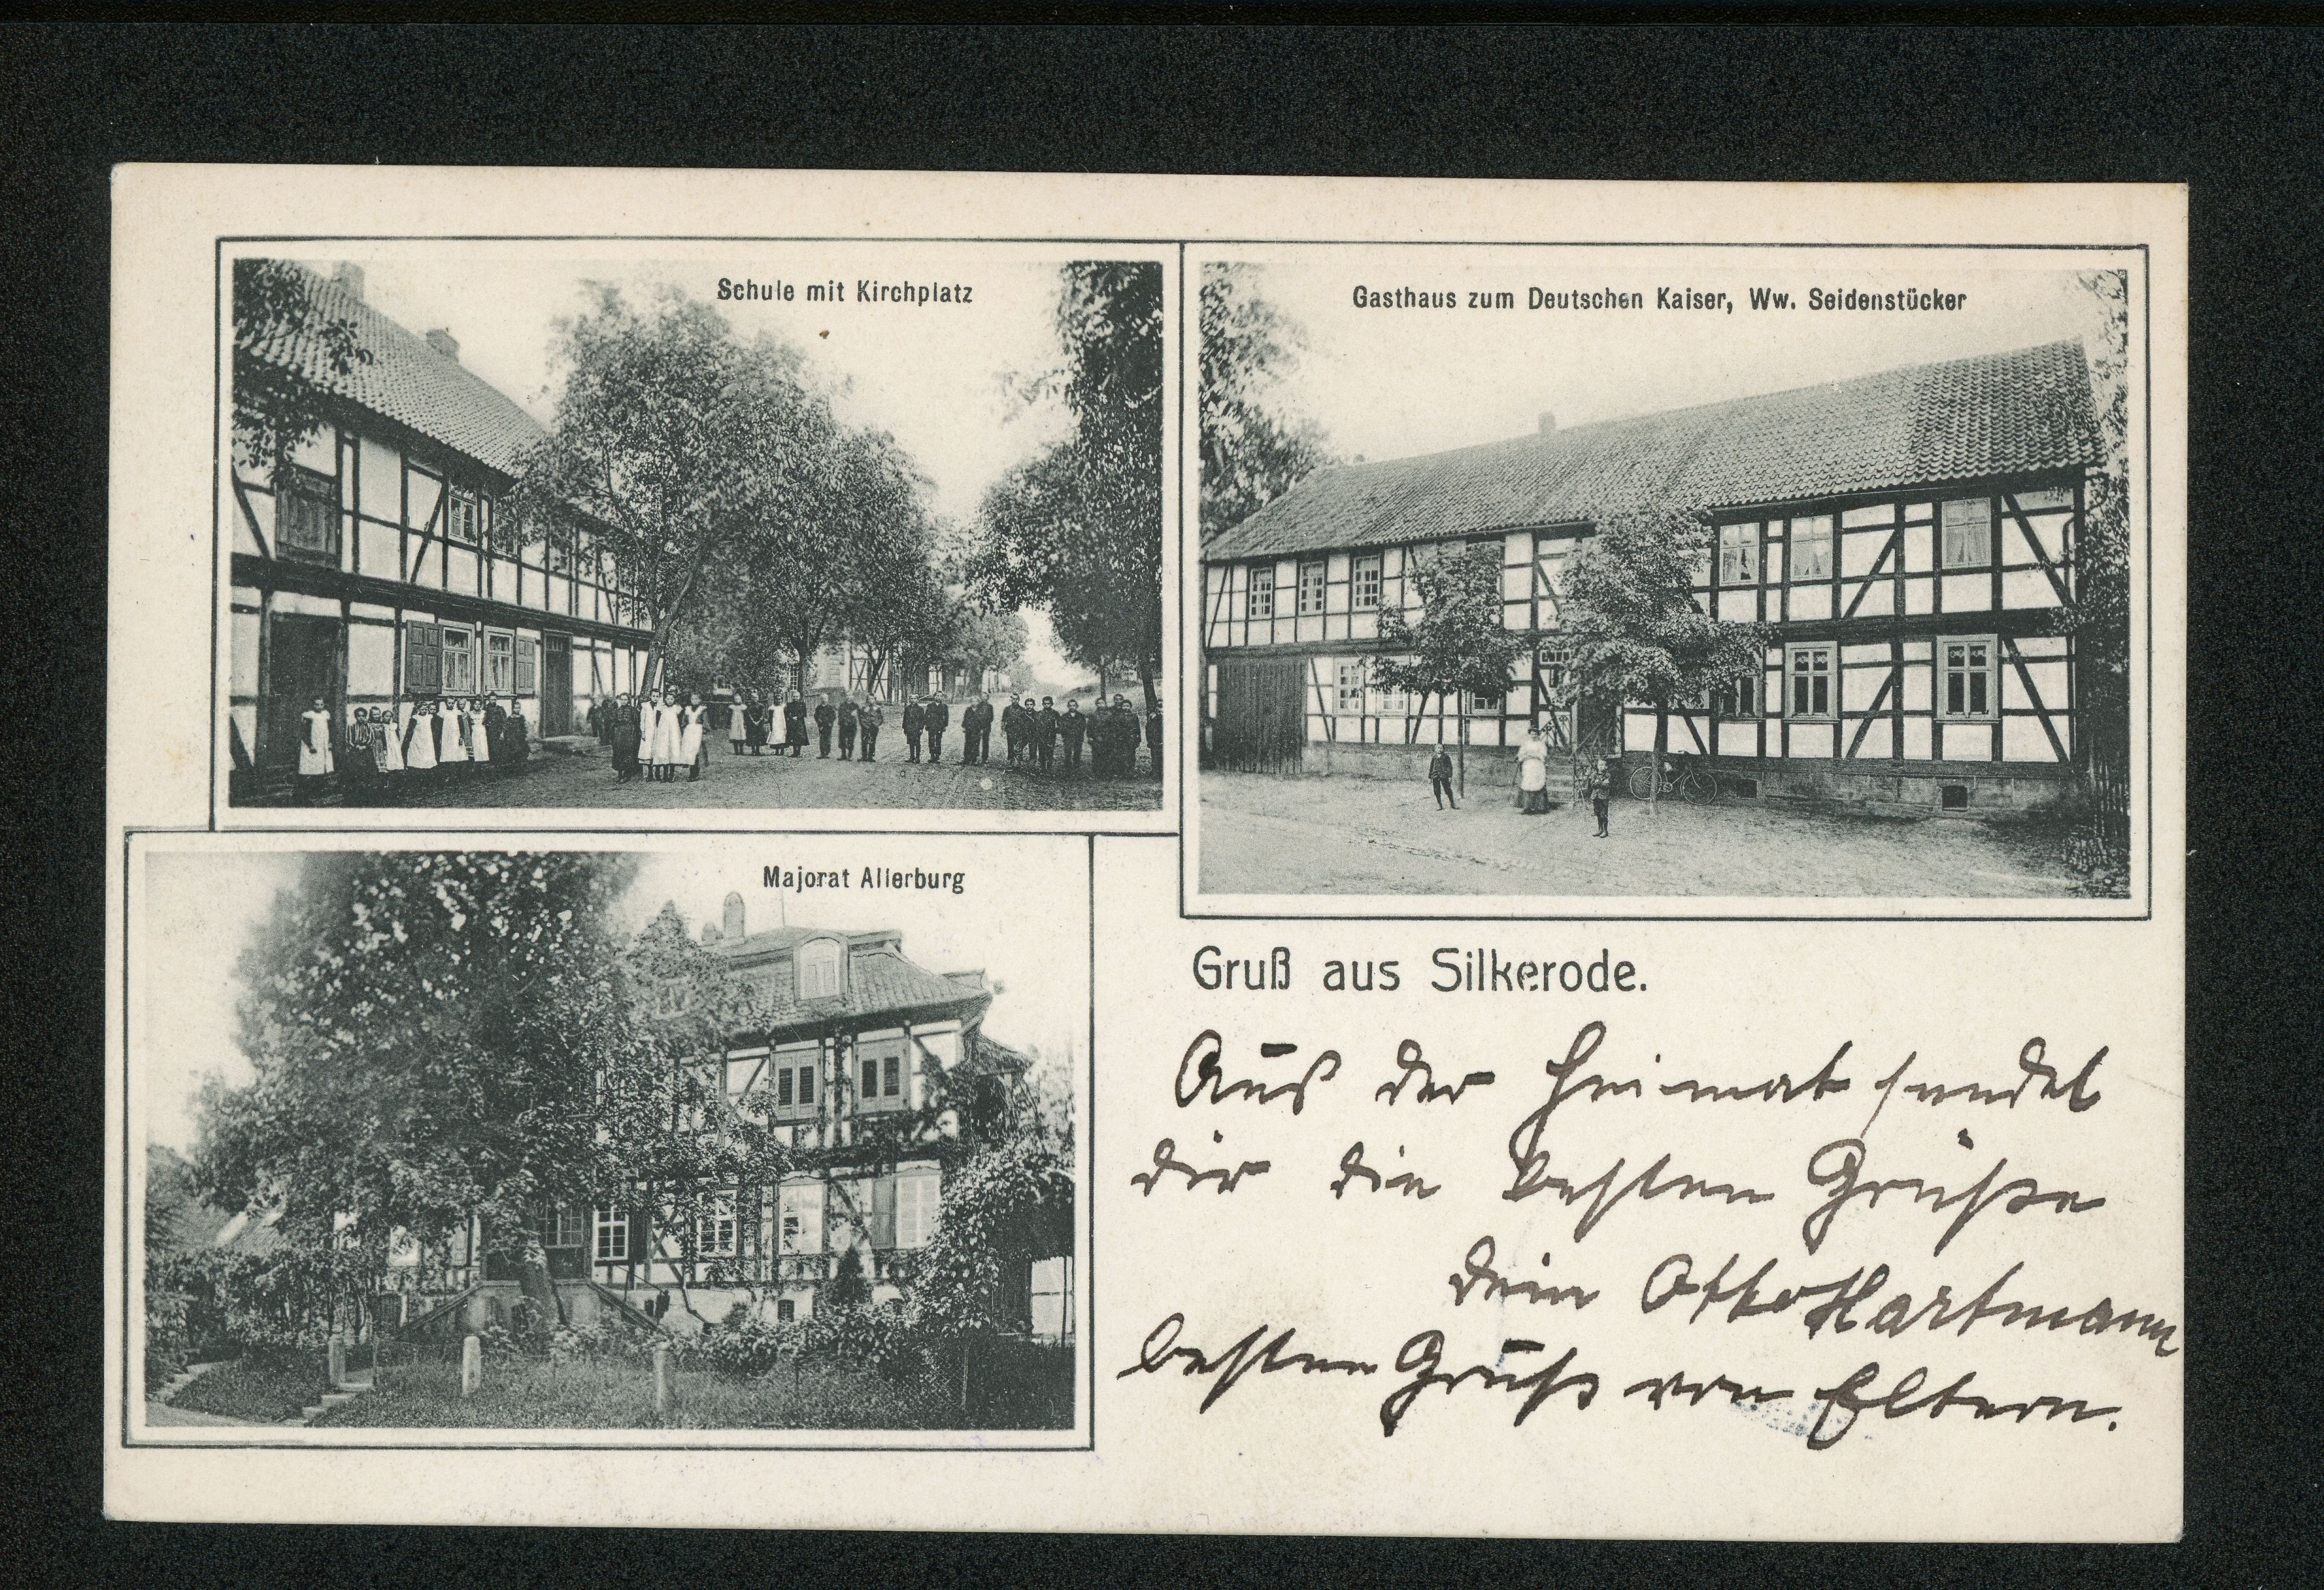 Schule mit Kirchplatz
Gasthaus zum Deutschen Kaiser, Ww. Seidenstücker
Majorat Allerburg
Gruß aus Silkerode.
Aus der Heimat sendet
dir die besten Grüße
dein Otto Hartmann
besten Gruß von Eltern.